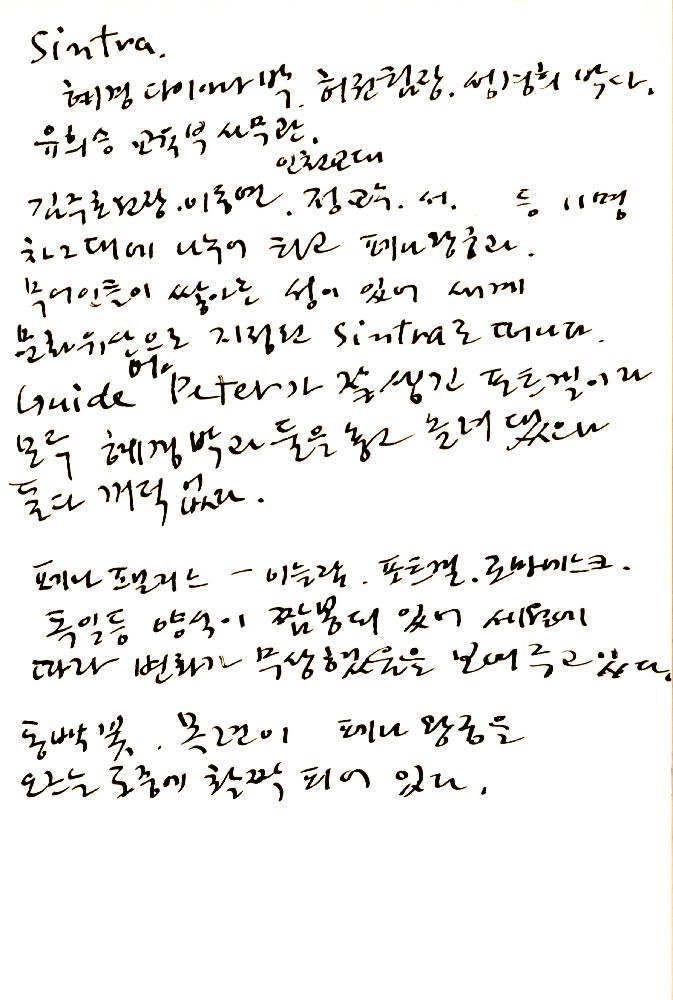 Sintra.
혜경 다이애나 박. 허권 팀장. 성경희 박사.
유희승 교육부 사무관.
인천교대
김주호 원장. 이동연. 정교수. 서. 등 11명
차 2대에 나누어 타고 페나왕궁과.
무어인들이 쌓아논 성이 있어 세계
문화유산으로 지정된 Sintra로 떠나다.
Guide Peter가 잘 생긴 포트갈이라
모두 혜경박과 둘을 놓고 놀려 댔으나
둘다 끄떡 없다.
페나 팰리스 – 이슬람. 포트갈. 로마네스크.
독일등 양식이 짬뽕되 있어 세월에
따라 변화가 무상했음을 보여 주고 있다.
동백꽃. 목련이 페나 왕궁을
오르는 도중에 활짝 피어 있다.